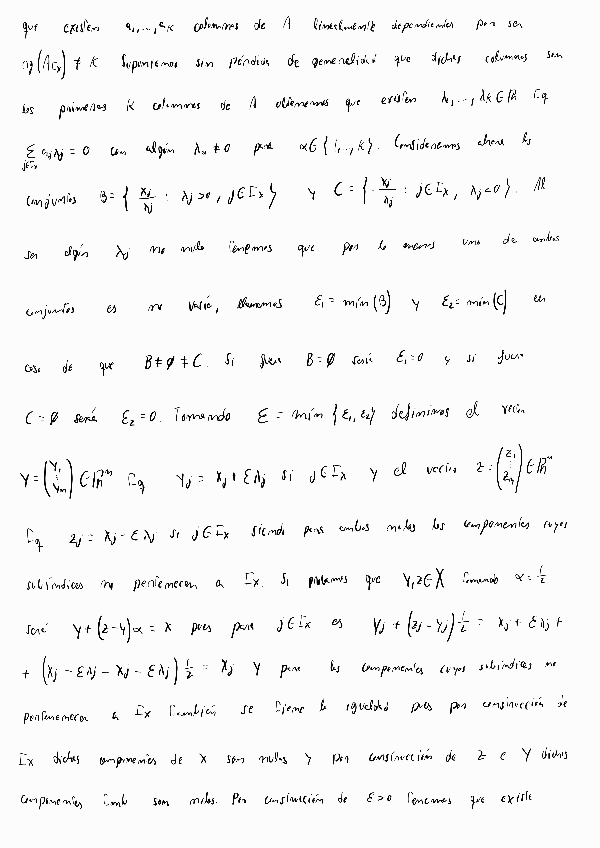 que existen a₁,...,aₖ columnas de A linealmente dependientes por ser
rg(A_{Ix}) ≠ K Suponiendo sin pérdida de generalidad que dichas columnas son
las primeras K columnas de A obtenemos que existen λ₁,...,λₖ ∈ ℝ tq
∑_{j∈Ix} aⱼλⱼ = 0 con algún λ_α ≠ 0 para α∈{1,..,K}. Consideremos ahora los
conjuntos B = { xⱼ/λⱼ : λⱼ>0, j∈Ix } y C = { -xⱼ/λⱼ : j∈Ix, λⱼ<0 }. Al
ser algún λⱼ no nulo tenemos que por lo menos uno de ambos
conjuntos es no vacío, llamemos ε₁ = mín(B) y ε₂ = mín(C) en
caso de que B≠∅≠C. Si fuera B=∅ sería ε₁=0 y si fuera
C=∅ sería ε₂=0. Tomando ε = mín{ε₁,ε₂} definimos el vector
Y = (Y₁ ⋮ Yₘ) ∈ ℝⁿ tq Yⱼ = Xⱼ + ελⱼ si j∈Ix y el vector z = (z₁ ⋮ zₙ) ∈ ℝⁿ
tq zⱼ = xⱼ - ελⱼ si j∈Ix siendo para ambos nulas las componentes cuyos
subíndices no pertenecen a Ix. Si probamos que Y,z∈X tomando α=1/2
será Y+(z-Y)α = X pues para j∈Ix es Yⱼ + (zⱼ-Yⱼ)1/2 = Xⱼ + ελⱼ +
+ (xⱼ - ελⱼ - Xⱼ - ελⱼ)1/2 = Xⱼ y para las componentes cuyos subíndices no
pertenecen a Ix también se tiene la igualdad pues por construcción de
Ix dichas componentes de X son nulas y por construcción de z e Y dichas
componentes tamb son nulas. Por construcción de ε>0 tenemos que existe